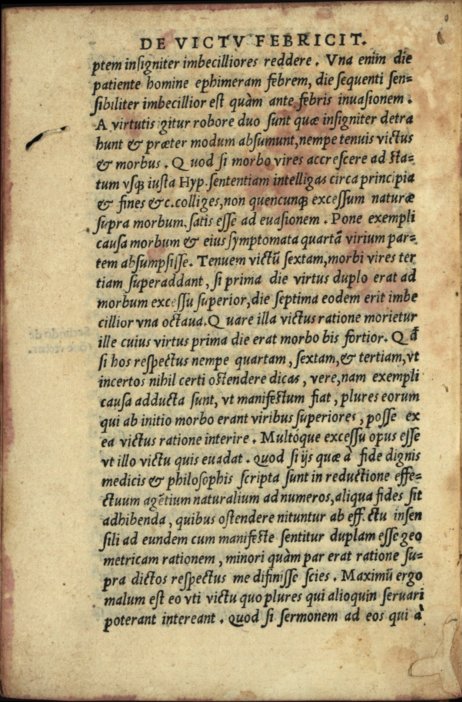 DE VICTV FEBRICIT.
ptem insigniter imbecilliores reddere. Vna enim die
patiente homine ephimeram febrem, die sequenti sen-
sibiliter imbecillior est quàm ante febris inuasionem.
A virtutis igitur robore duo sunt quæ insigniter detra
hunt & præter modum absumunt, nempe tenuis victus
& morbus. Quod si morbo vires accrescere ad sta-
tum vsq; iusta Hyp. sententiam intelligas circa principia
& fines &c. colliges, non quencunq; excessum naturæ
supra morbum, satis esse ad euasionem. Pone exempli
causa morbum & eius symptomata quartã virium par-
tem absumpsisse. Tenuem victũ sextam, morbi vires ter
tiam superaddant, si prima die virtus duplo erat ad
morbum excessu superior, die septima eodem erit imbe
cillior vna octaua. Quare illa victus ratione morietur
ille cuius virtus prima die erat morbo bis fortior. Qđ
si hos respectus nempe quartam, sextam, & tertiam, vt
incertos nihil certi ostendere dicas, vere, nam exempli
causa adducta sunt, vt manifestum fiat, plures eorum
qui ab initio morbo erant viribus superiores, posse ex
ea victus ratione interire. Multóque excessu opus esse
vt illo victu quis euadat. quod si ijs quæ à fide dignis
medicis & philosophis scripta sunt in reductione effe-
ctuum agẽtium naturalium ad numeros, aliqua fides sit
adhibenda, quibus ostendere nituntur ab eff. ctu insen
sili ad eundem cum manifeste sentitur duplam esse geo
metricam rationem, minori quàm par erat ratione su-
pra dictos respectus me difinisse scies. Maximũ ergo
malum est eo vti victu quo plures qui alioquin seruari
poterant intereant. quod si sermonem ad eos qui à